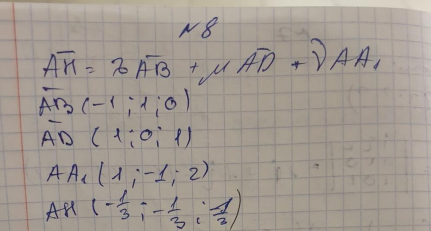 №8
AH = γ AB + μ AD + ν AA₁
AB (-1; 1; 0)
AD (1; 0; 1)
AA₁ (1; -1; 2)
AH (-1/3; -1/3; 1/3)